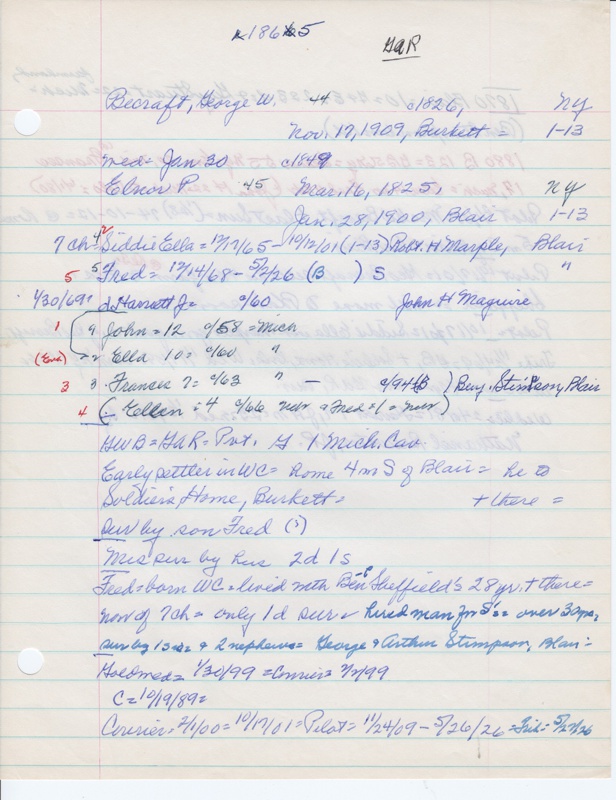 1865
GAR
Becraft, George W. 44 c1826, NY
Nov. 17, 1909, Burkett = 1-13
med = Jan 30 c1849
Elnor P. 45 Mar. 16, 1825, NY
Jan. 28, 1900, Blair 1-13
7 ch = Siddie Ella = 12/17/65 – 10/12/01 (1-13) Robt. H Marple, Blair
5 Fred = 12/14/68 – 5/2/26 (B ) S "
1/30/69? d Harriett J = c/60 John H Maguire
1 9 John = 12 c/58 = Mich
(Eva) Ella 10 = c/60 "
3 3 Frances 7 = c/63 " – c/94 B ) Benj. Stimpson, Blair
4 ( Ellen = 4 c/66 Nebr & Fred = 1 = Nebr )
GWB = GAR = Pvt. G 1 Mich. Cav.
Early settler in WC = home 4 m S of Blair = he to
Soldier's Home, Burkett = + there =
sur by son Fred (3)
Mrs sur by hus 2d 1s
Fred = born WC = lived with Ben Sheffield's 28 yr. + there =
now of 7 ch = only 1 d sur = hired man for S's = over 30 yrs,
sur by 1 sis = & 2 nephews = George & Arthur Stimpson, Blair =
Gold med = 1/30/99 = Courier = 2/2/99
C = 10/19/89 =
Courier = 2/1/00 = 10/17/01 = Pilot = 11/24/09 – 5/26/26 = Trib = 5/27/26